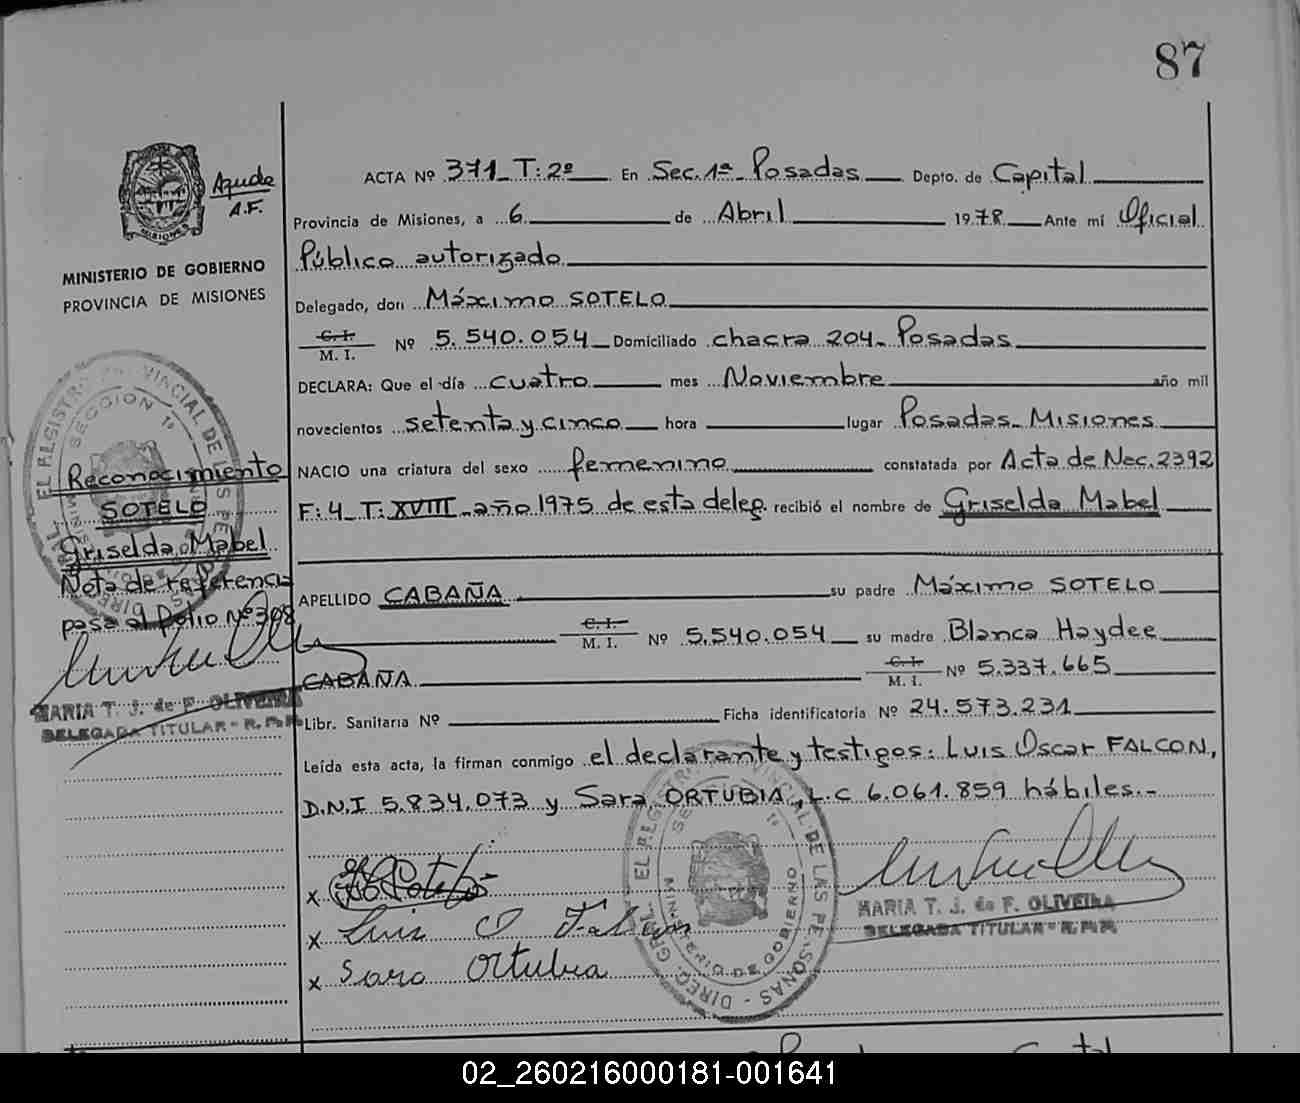 87
Ayuda
A.F.
MISIONES
MINISTERIO DE GOBIERNO
PROVINCIA DE MISIONES
Reconocimiento
SOTELO
Griselda Mabel
Nota de referencia
pasa al Folio Nº 308
MARIA T. J. de F. OLIVEIRA
DELEGADA TITULAR - R. P. P.
ACTA Nº 371 T: 2º En Sec. 1ª Posadas Depto. de Capital
Provincia de Misiones, a 6 de Abril 1978 Ante mí Oficial
Público autorizado
Delegado, don Máximo SOTELO
C. I.
M. I. Nº 5.540.054 Domiciliado chacra 204. Posadas
DECLARA: Que el día cuatro mes Noviembre año mil
novecientos setenta y cinco hora lugar Posadas Misiones
NACIO una criatura del sexo femenino constatada por Acta de Nac. 2392
F: 4 T: XVIII año 1975 de esta deleg. recibió el nombre de Griselda Mabel
APELLIDO CABAÑA su padre Máximo SOTELO
C. I.
M. I. Nº 5.540.054 su madre Blanca Haydee
CABAÑA C. I.
M. I. Nº 5.337.665
Libr. Sanitaria Nº Ficha identificatoria Nº 24.573.231
Leída esta acta, la firman conmigo el declarante y testigos: Luis Oscar FALCON,
D.N.I 5.834.073 y Sara ORTUBIA, L.C 6.061.859 hábiles.-
x Sotelo
x Luis O Falcon
x Sara Ortubia
MARIA T. J. de F. OLIVEIRA
DELEGADA TITULAR
DIREC. GRAL. EL REGISTRO PROVINCIAL DE LAS PERSONAS
MINISTERIO DE GOBIERNO
02_260216000181-001641